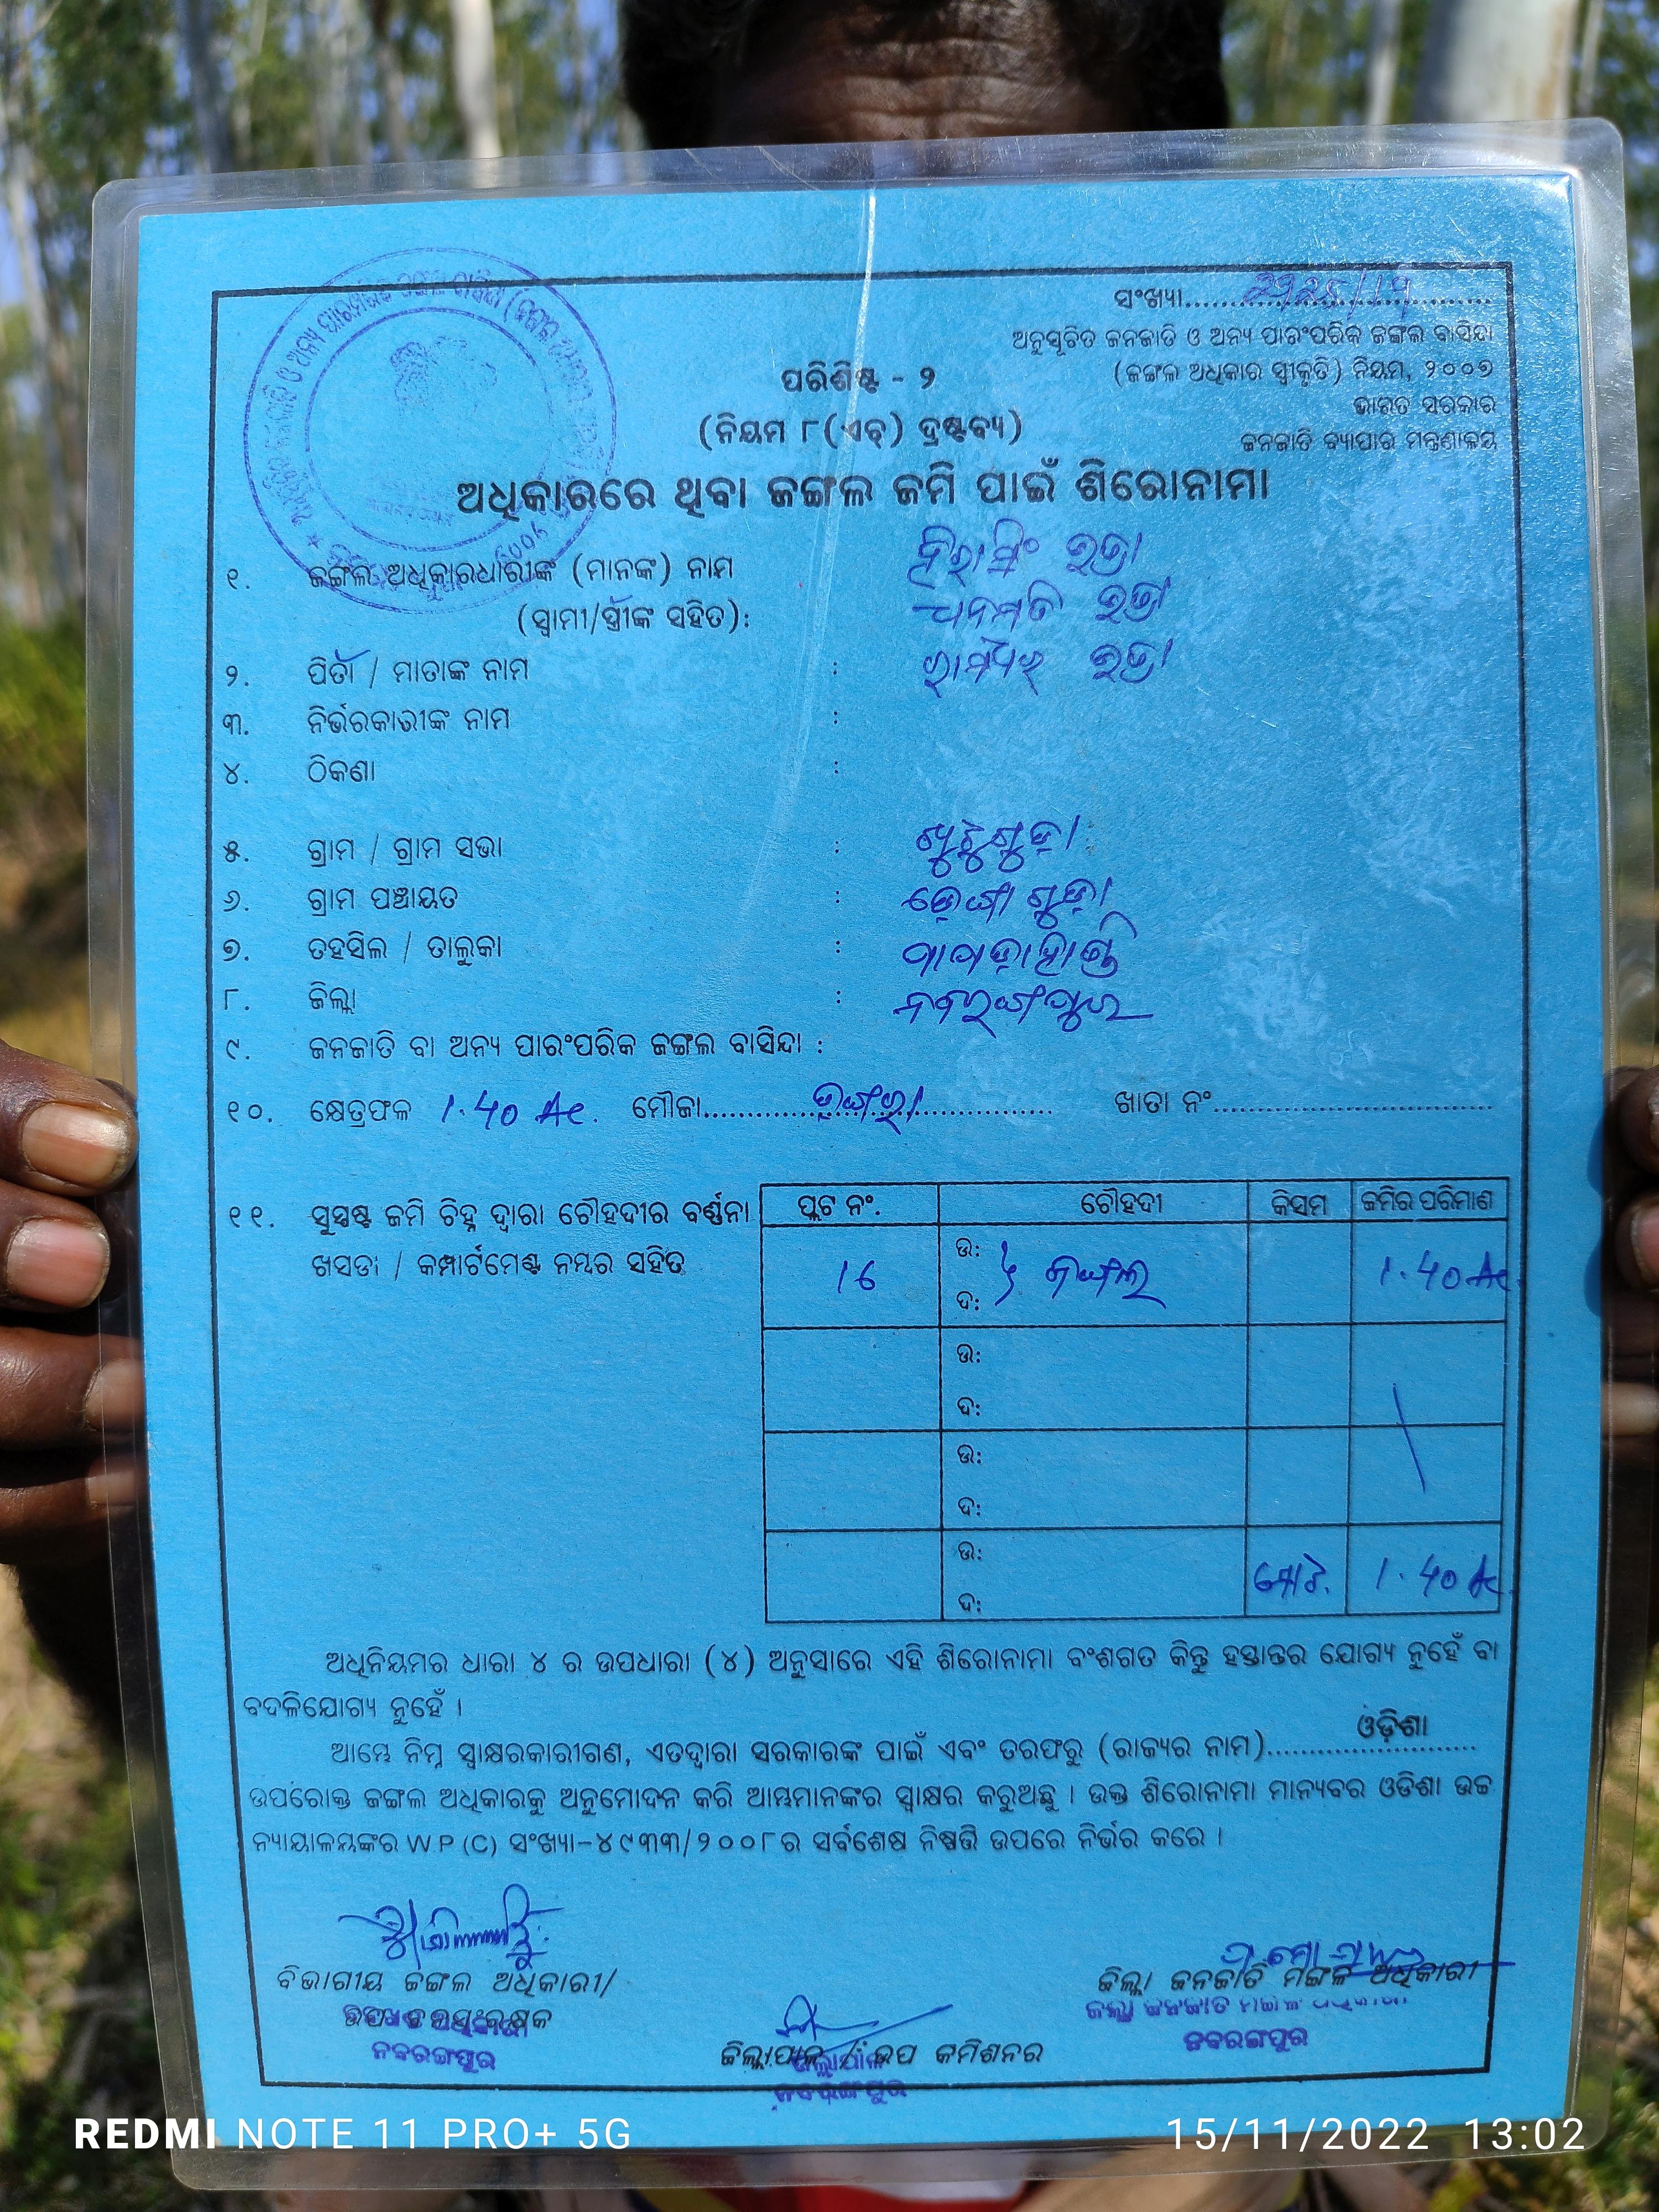 ସଂଖ୍ୟା
ଅନୁସୂଚିତ ଜନଜାତି ଓ ଅନ୍ୟ ପାରଂପରିକ ଜଙ୍ଗଲ ବାସିନ୍ଦା
(ଜଙ୍ଗଲ ଅଧିକାର ସ୍ୱୀକୃତି) ନିୟମ, ୨୦୦୭
ଭାରତ ସରକାର
ଜନଜାତି ବ୍ୟାପାର ମନ୍ତ୍ରଣାଳୟ
ପରିଶିଷ୍ଟ - ୨
(ନିୟମ ୮(ଏଚ୍) ଦ୍ରଷ୍ଟବ୍ୟ)
ଅଧିକାରରେ ଥିବା ଜଙ୍ଗଲ ଜମି ପାଇଁ ଶିରୋନାମା
୧. ଜଙ୍ଗଲ ଅଧିକାରଧାରୀଙ୍କ (ମାନଙ୍କ) ନାମ
(ସ୍ୱାମୀ/ସ୍ତ୍ରୀଙ୍କ ସହିତ):
୨. ପିତା / ମାତାଙ୍କ ନାମ :
୩. ନିର୍ଭରକାରୀଙ୍କ ନାମ :
୪. ଠିକଣା :
୫. ଗ୍ରାମ / ଗ୍ରାମ ସଭା :
୬. ଗ୍ରାମ ପଞ୍ଚାୟତ :
୭. ତହସିଲ / ତାଲୁକା : ପାପଡ଼ାହାଣ୍ଡି
୮. ଜିଲ୍ଲା : ନବରଙ୍ଗପୁର
୯. ଜନଜାତି ବା ଅନ୍ୟ ପାରଂପରିକ ଜଙ୍ଗଲ ବାସିନ୍ଦା :
୧୦. କ୍ଷେତ୍ରଫଳ 1.40 Ac. ମୌଜା ଖାତା ନଂ
୧୧. ସୁସ୍ପଷ୍ଟ ଜମି ଚିହ୍ନ ଦ୍ୱାରା ଚୌହଦୀର ବର୍ଣ୍ଣନା
ଖସଡା / କମ୍ପାର୍ଟମେଣ୍ଟ ନମ୍ବର ସହିତ
ପ୍ଲଟ ନଂ. ଚୌହଦୀ କିସମ ଜମିର ପରିମାଣ
ଉ:
16 ଜଙ୍ଗଲ 1.40 Ac
ଦ:
ଉ:
ଦ:
ଉ:
ଦ:
ଉ:
ମୋଟ. 1.40 Ac.
ଦ:
ଅଧିନିୟମର ଧାରା ୪ ର ଉପଧାରା (୪) ଅନୁସାରେ ଏହି ଶିରୋନାମା ବଂଶଗତ କିନ୍ତୁ ହସ୍ତାନ୍ତର ଯୋଗ୍ୟ ନୁହେଁ ବା
ବଦଳିଯୋଗ୍ୟ ନୁହେଁ ।
ଆମ୍ଭେ ନିମ୍ନ ସ୍ୱାକ୍ଷରକାରୀଗଣ, ଏତଦ୍ୱାରା ସରକାରଙ୍କ ପାଇଁ ଏବଂ ତରଫରୁ (ରାଜ୍ୟର ନାମ) ଓଡ଼ିଶା
ଉପରୋକ୍ତ ଜଙ୍ଗଲ ଅଧିକାରକୁ ଅନୁମୋଦନ କରି ଆମ୍ଭମାନଙ୍କର ସ୍ୱାକ୍ଷର କରୁଅଛୁ । ଉକ୍ତ ଶିରୋନାମା ମାନ୍ୟବର ଓଡିଶା ଉଚ୍ଚ
ନ୍ୟାୟାଳୟଙ୍କର W.P.(C) ସଂଖ୍ୟା-୪୯୩୩/୨୦୦୮ର ସର୍ବଶେଷ ନିଷ୍ପତ୍ତି ଉପରେ ନିର୍ଭର କରେ ।
ବିଭାଗୀୟ ଜଙ୍ଗଲ ଅଧିକାରୀ/
ନବରଙ୍ଗପୁର
ଜିଲ୍ଲାପାଳ / ଉପ କମିଶନର
ନବରଙ୍ଗପୁର
ଜିଲ୍ଲା ଜନଜାତି ମଙ୍ଗଳ ଅଧିକାରୀ
ଜିଲ୍ଲା ଜନଜାତି ମଙ୍ଗଳ ଅଧିକାରୀ
ନବରଙ୍ଗପୁର
REDMI NOTE 11 PRO+ 5G
15/11/2022 13:02